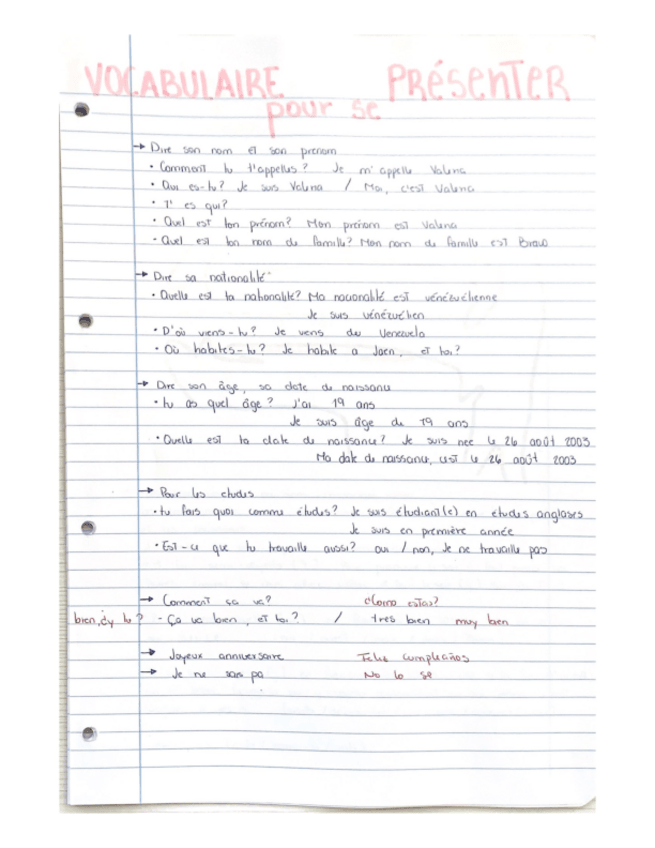 VOCABULAIRE pour se PRÉSENTER
→ Dire son nom et son prenom
• Comment tu t'appelles? Je m'appelle Valeria
• Qui es-tu? Je suis Valeria / Moi, c'est Valeria
• T'es qui?
• Quel est ton prénom? Mon prénom est Valeria
- Quel est ton nom de famille? Mon nom de famille est Bravo
→ Dire sa nationalité
• Quelle est ta nationalité? Ma nacionalité est vénézuélienne
Je suis vénézuélien
• D'où viens-tu? Je viens du Venezuela
• Où habites-tu? Je habite a Jaen, et toi?
→ Dire son âge, sa date de naissance
• tu as quel âge? J'ai 19 ans
Je suis âge de 19 ans
• Quelle est ta date de naissance? Je suis nee le 26 août 2003
Ma date de naissance, est le 26 août 2003
→ Pour les etudes
• tu fais quoi comme études? Je suis étudiant(e) en études anglaises
Je suis en première année
• Est-ce que tu travaille aussi? oui / non, Je ne travaille pas
→ Comment ça va? ¿Como estas?
bien, ¿y tu? - Ça va bien, et toi? / tres bien muy bien
→ Joyeux anniversaire Feliz cumpleaños
→ Je ne sais pa No lo se